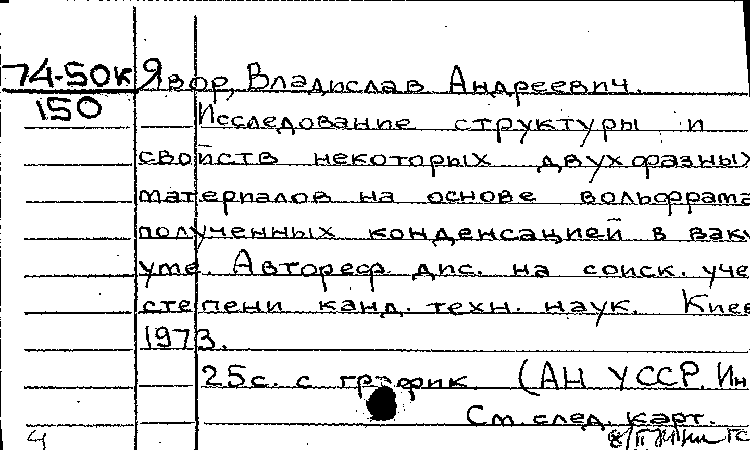 74-50к Явор, Владислав Андреевич.
150 Исследование структуры и
свойств некоторых двухфазных
материалов на основе вольфрама
полученных конденсацией в ваку
уме. Автореф. дис. на соиск. уче
степени канд. техн. наук. Киев
1973.
25с. с график. (АН УССР. Ин
См. след. карт.
4